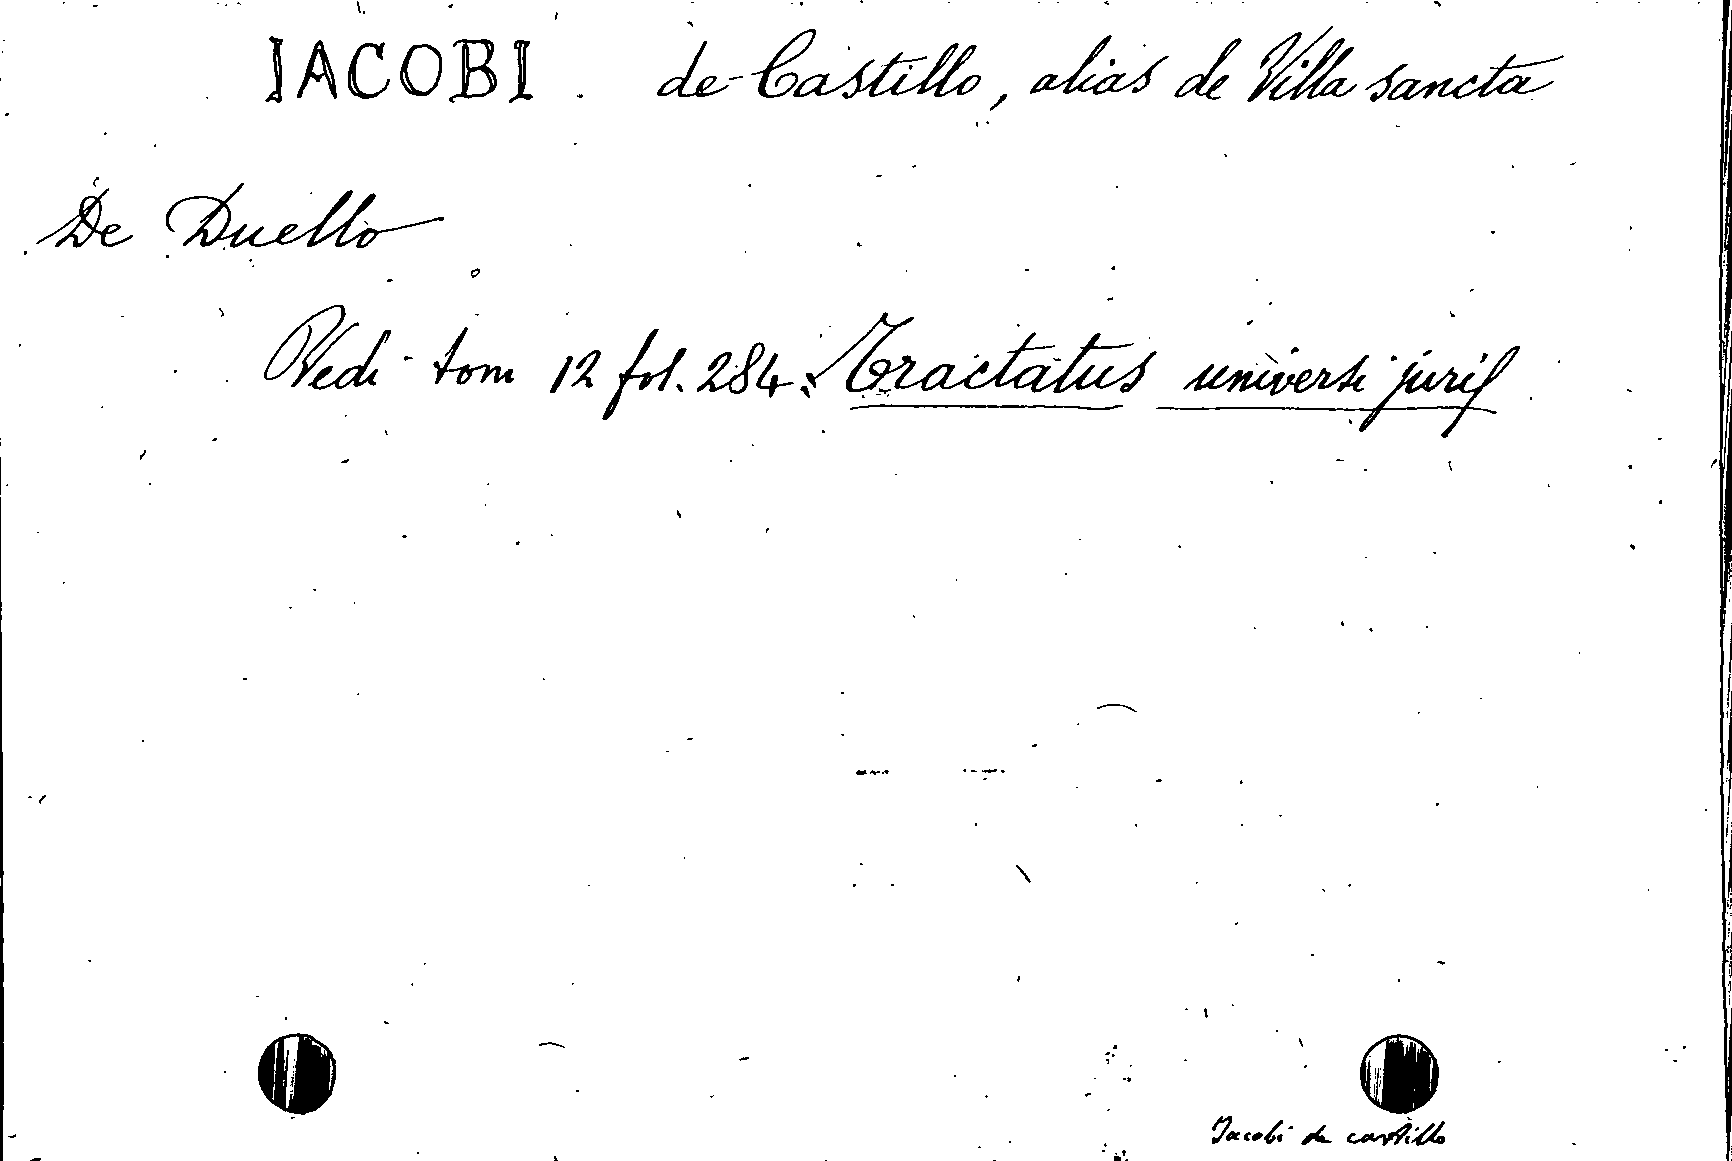 IACOBI. de Castillo, alias de Villa sancta
De Duello
Vedi tom 12 fol. 284: Tractatus universi juris
Jacobi de castillo